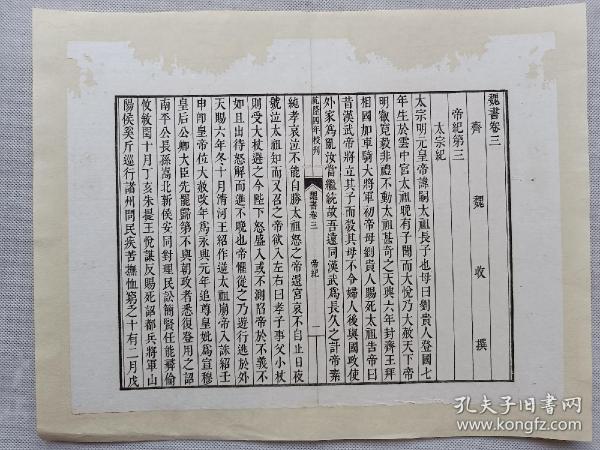 魏書卷三
齊魏收撰
帝紀第三
太宗紀
太宗明元皇帝諱嗣太祖長子也母曰劉貴人登國七
年生於雲中宮太祖晚有子聞而大悅乃大赦天下帝
明叡寬毅非禮不動太祖甚奇之天興六年封齊王拜
相國加車騎大將軍初帝母劉貴人賜死太祖告帝曰
昔漢武帝將立其子而殺其母不令婦人後與國政使
外家爲亂汝當繼統故吾遠同漢武爲長久之計帝素
純孝哀泣不能自勝太祖怒之帝還宮哀不自止日夜
號泣太祖知而又召之帝欲入左右曰孝子事父小杖
則受大杖避之今陛下怒盛入或不測陷帝於不義不
如且出待怒解而進不晚也帝懼從之乃遊行逃於外
天賜六年冬十月清河王紹作逆太祖崩帝入誅紹壬
申卽皇帝位大赦改年爲永興元年追尊皇妣爲宣穆
皇后公卿大臣先罷歸第不與朝政者悉復登用之詔
南平公長孫嵩北新侯安同對理民訟簡賢任能彝倫
攸敘閏十月丁亥朱提王悅謀反賜死詔都兵將軍山
陽侯奚斤巡行諸州問民疾苦撫恤窮乏十有二月戊
乾隆四年校刊
魏書卷三
帝紀
一
孔夫子旧书网